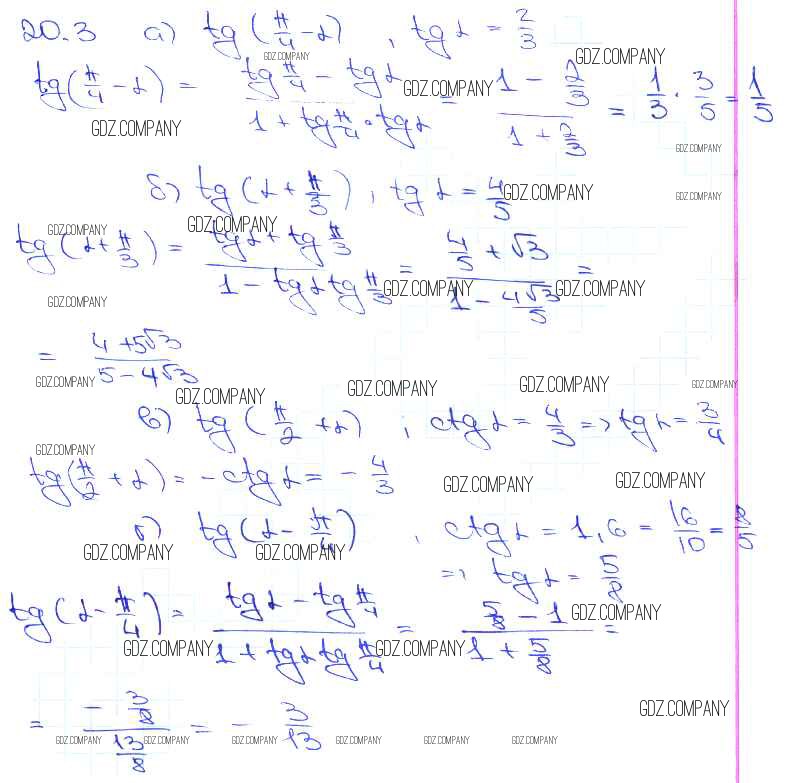 20.3 а) tg(π/4 - α), tg α = 2/3
tg(π/4 - α) = (tg π/4 - tg α)/(1 + tg π/4 · tg α) = (1 - 2/3)/(1 + 2/3) = 1/3 · 3/5 = 1/5
б) tg(α + π/3), tg α = 4/5
tg(α + π/3) = (tg α + tg π/3)/(1 - tg α tg π/3) = (4/5 + √3)/(1 - 4√3/5) =
= (4 + 5√3)/(5 - 4√3)
в) tg(π/2 + α), ctg α = 4/3 => tg α = 3/4
tg(π/2 + α) = - ctg α = - 4/3
г) tg(α - π/4), ctg α = 1,6 = 16/10 = 8/5
=> tg α = 5/8
tg(α - π/4) = (tg α - tg π/4)/(1 + tg α tg π/4) = (5/8 - 1)/(1 + 5/8) =
= (- 3/8)/(13/8) = - 3/13
GDZ.COMPANY